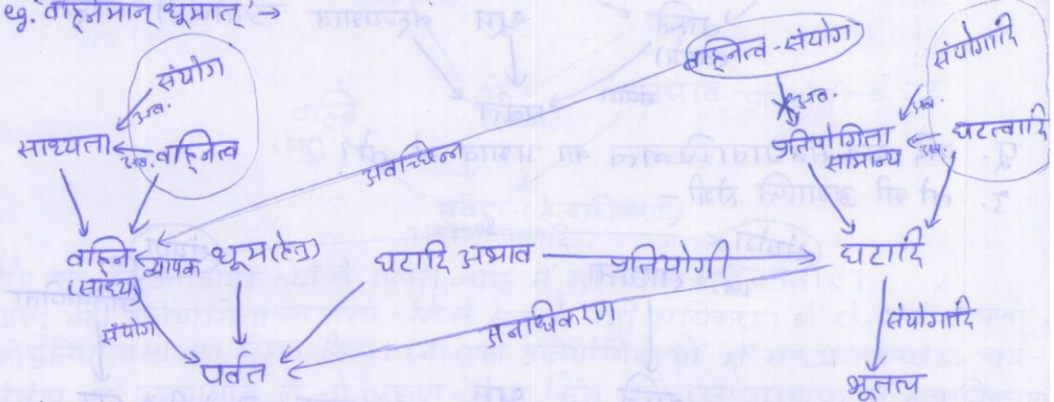 eg. वह्निमान् धूमात् →
संयोग
अव.
साध्यता
अव. वह्नित्व
वह्नित्व-संयोग
अव.
संयोगादि
अव.
प्रतियोगिता
सामान्य
अव.
घटत्वादि
अवच्छिन्न
वह्नि
(साध्य)
व्यापक
धूम(हेतु)
घटादि अभाव
प्रतियोगी
घटादि
संयोग
अनधिकरण
संयोगादि
पर्वत
भूतल